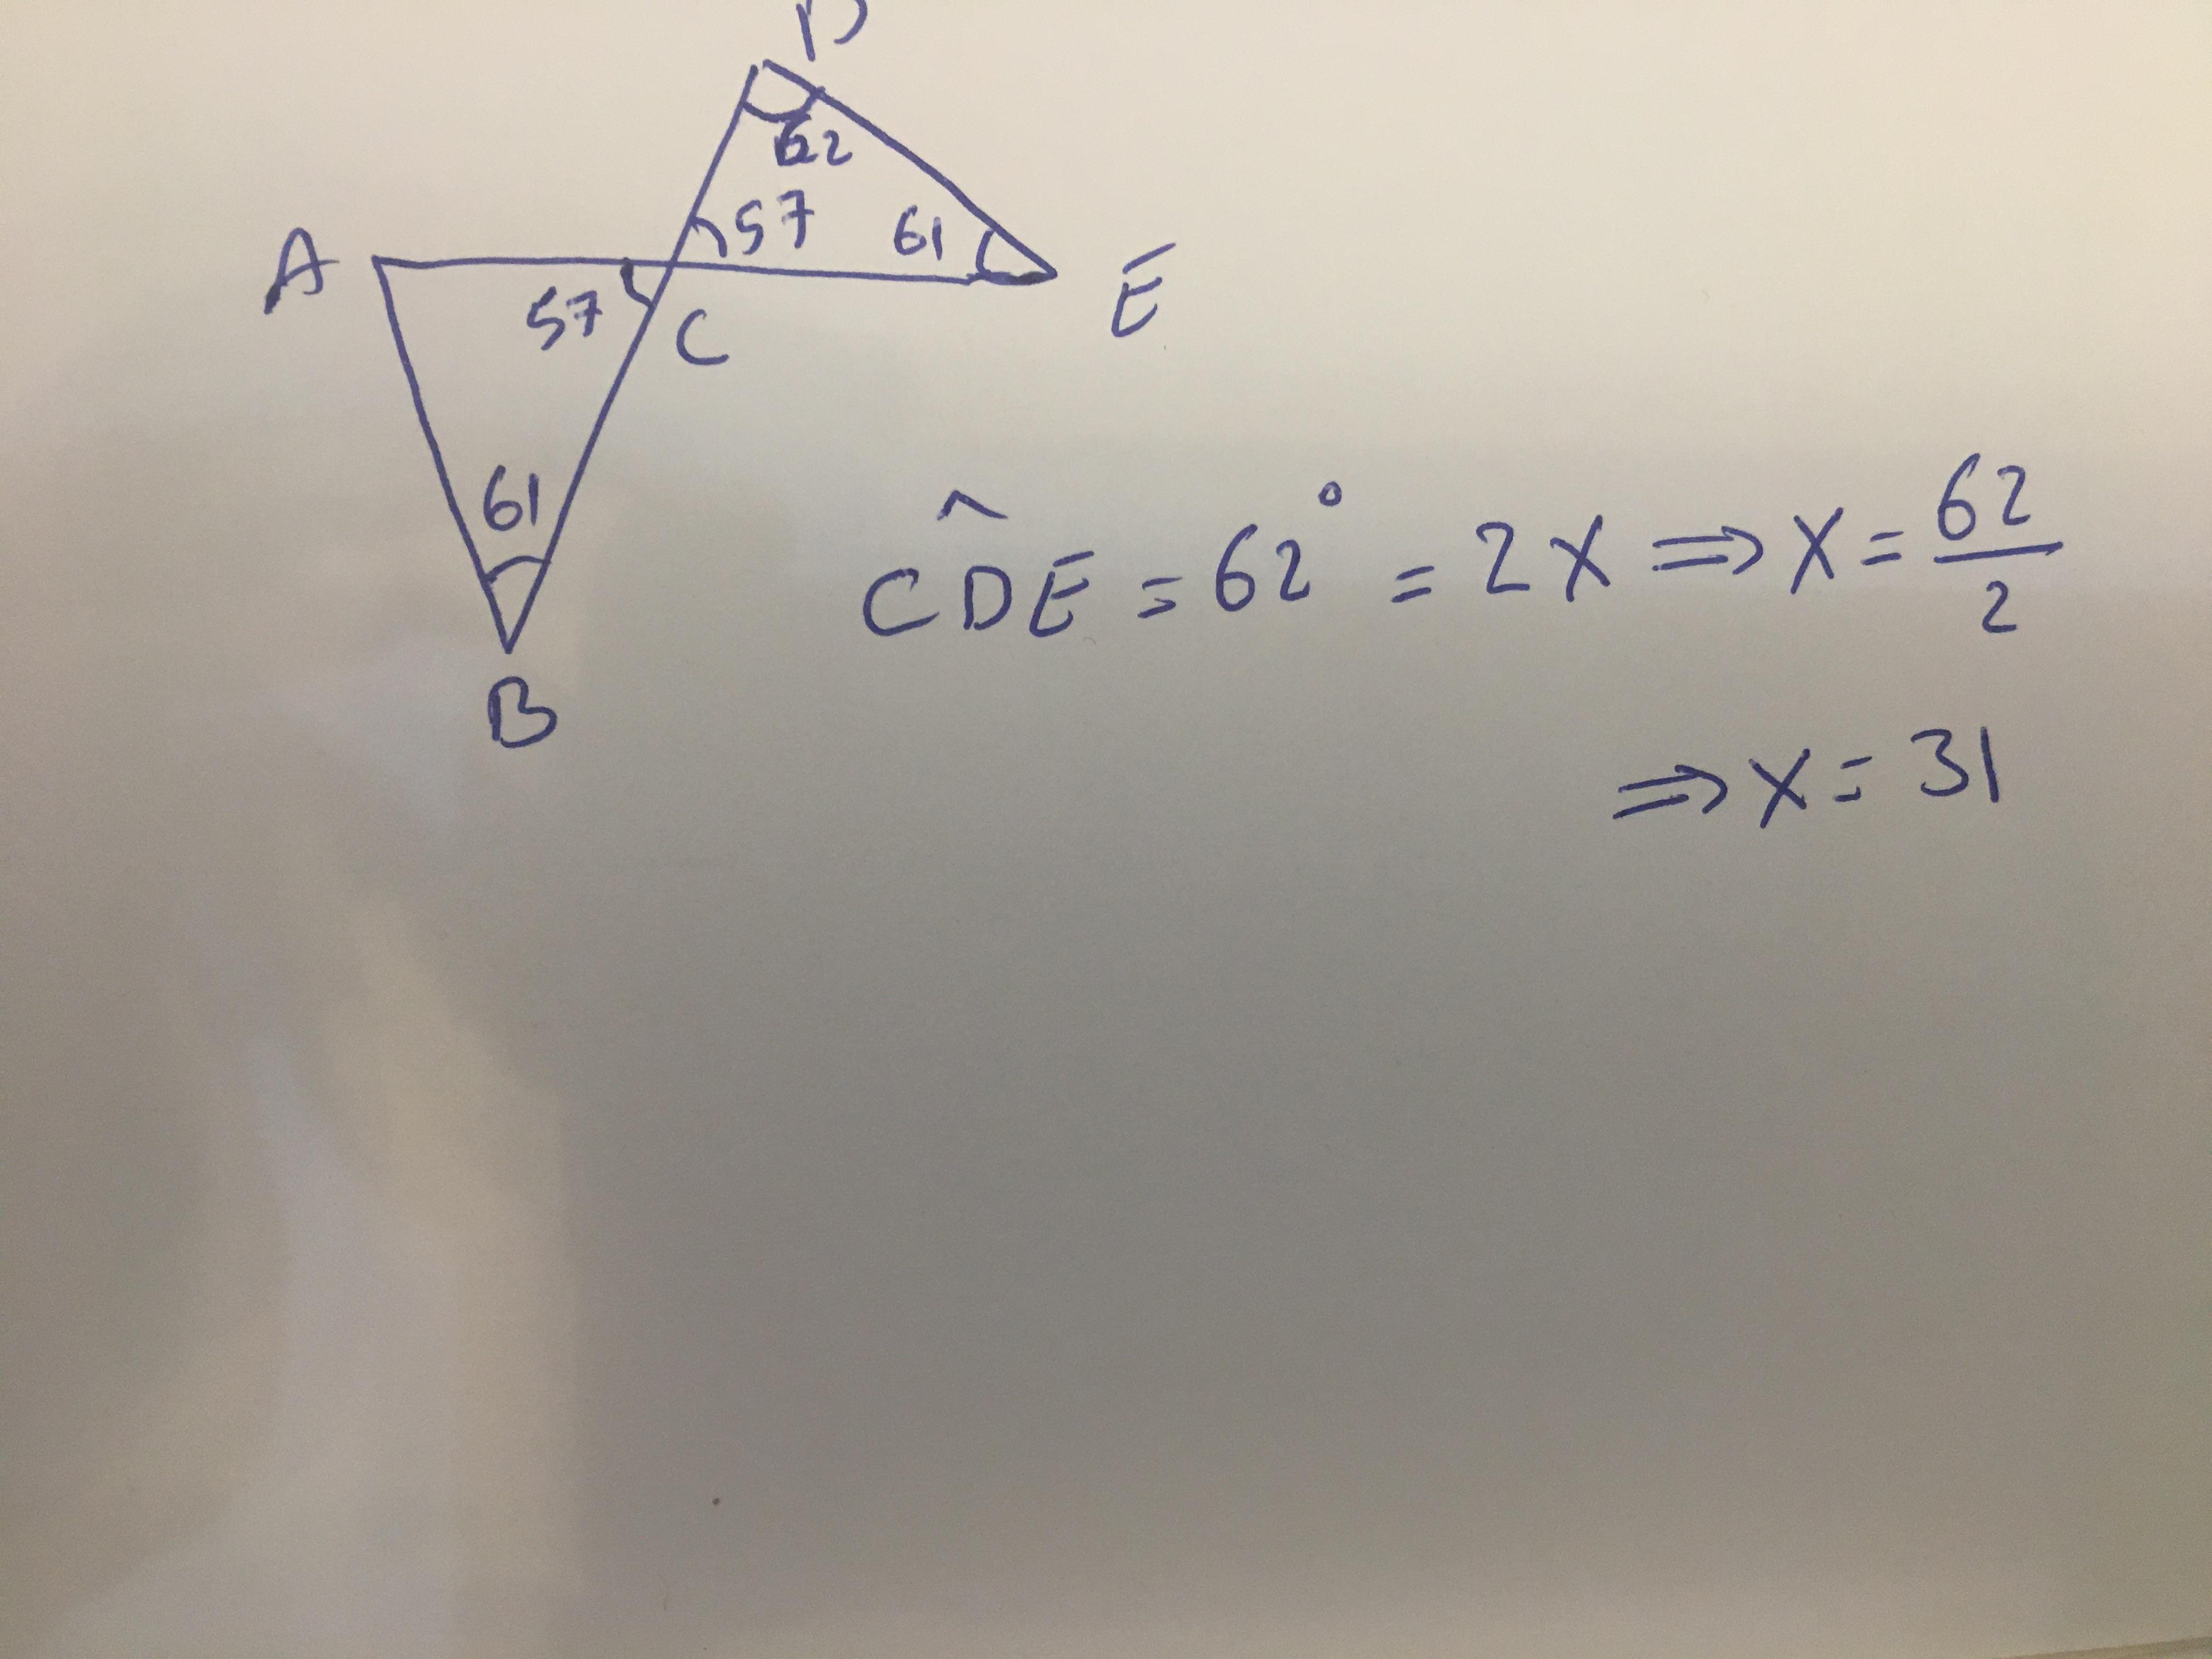 D
62
57
61
A
E
57
C
61
B
CD̂E = 62° = 2x ⇒ x = 62/2
⇒ x = 31